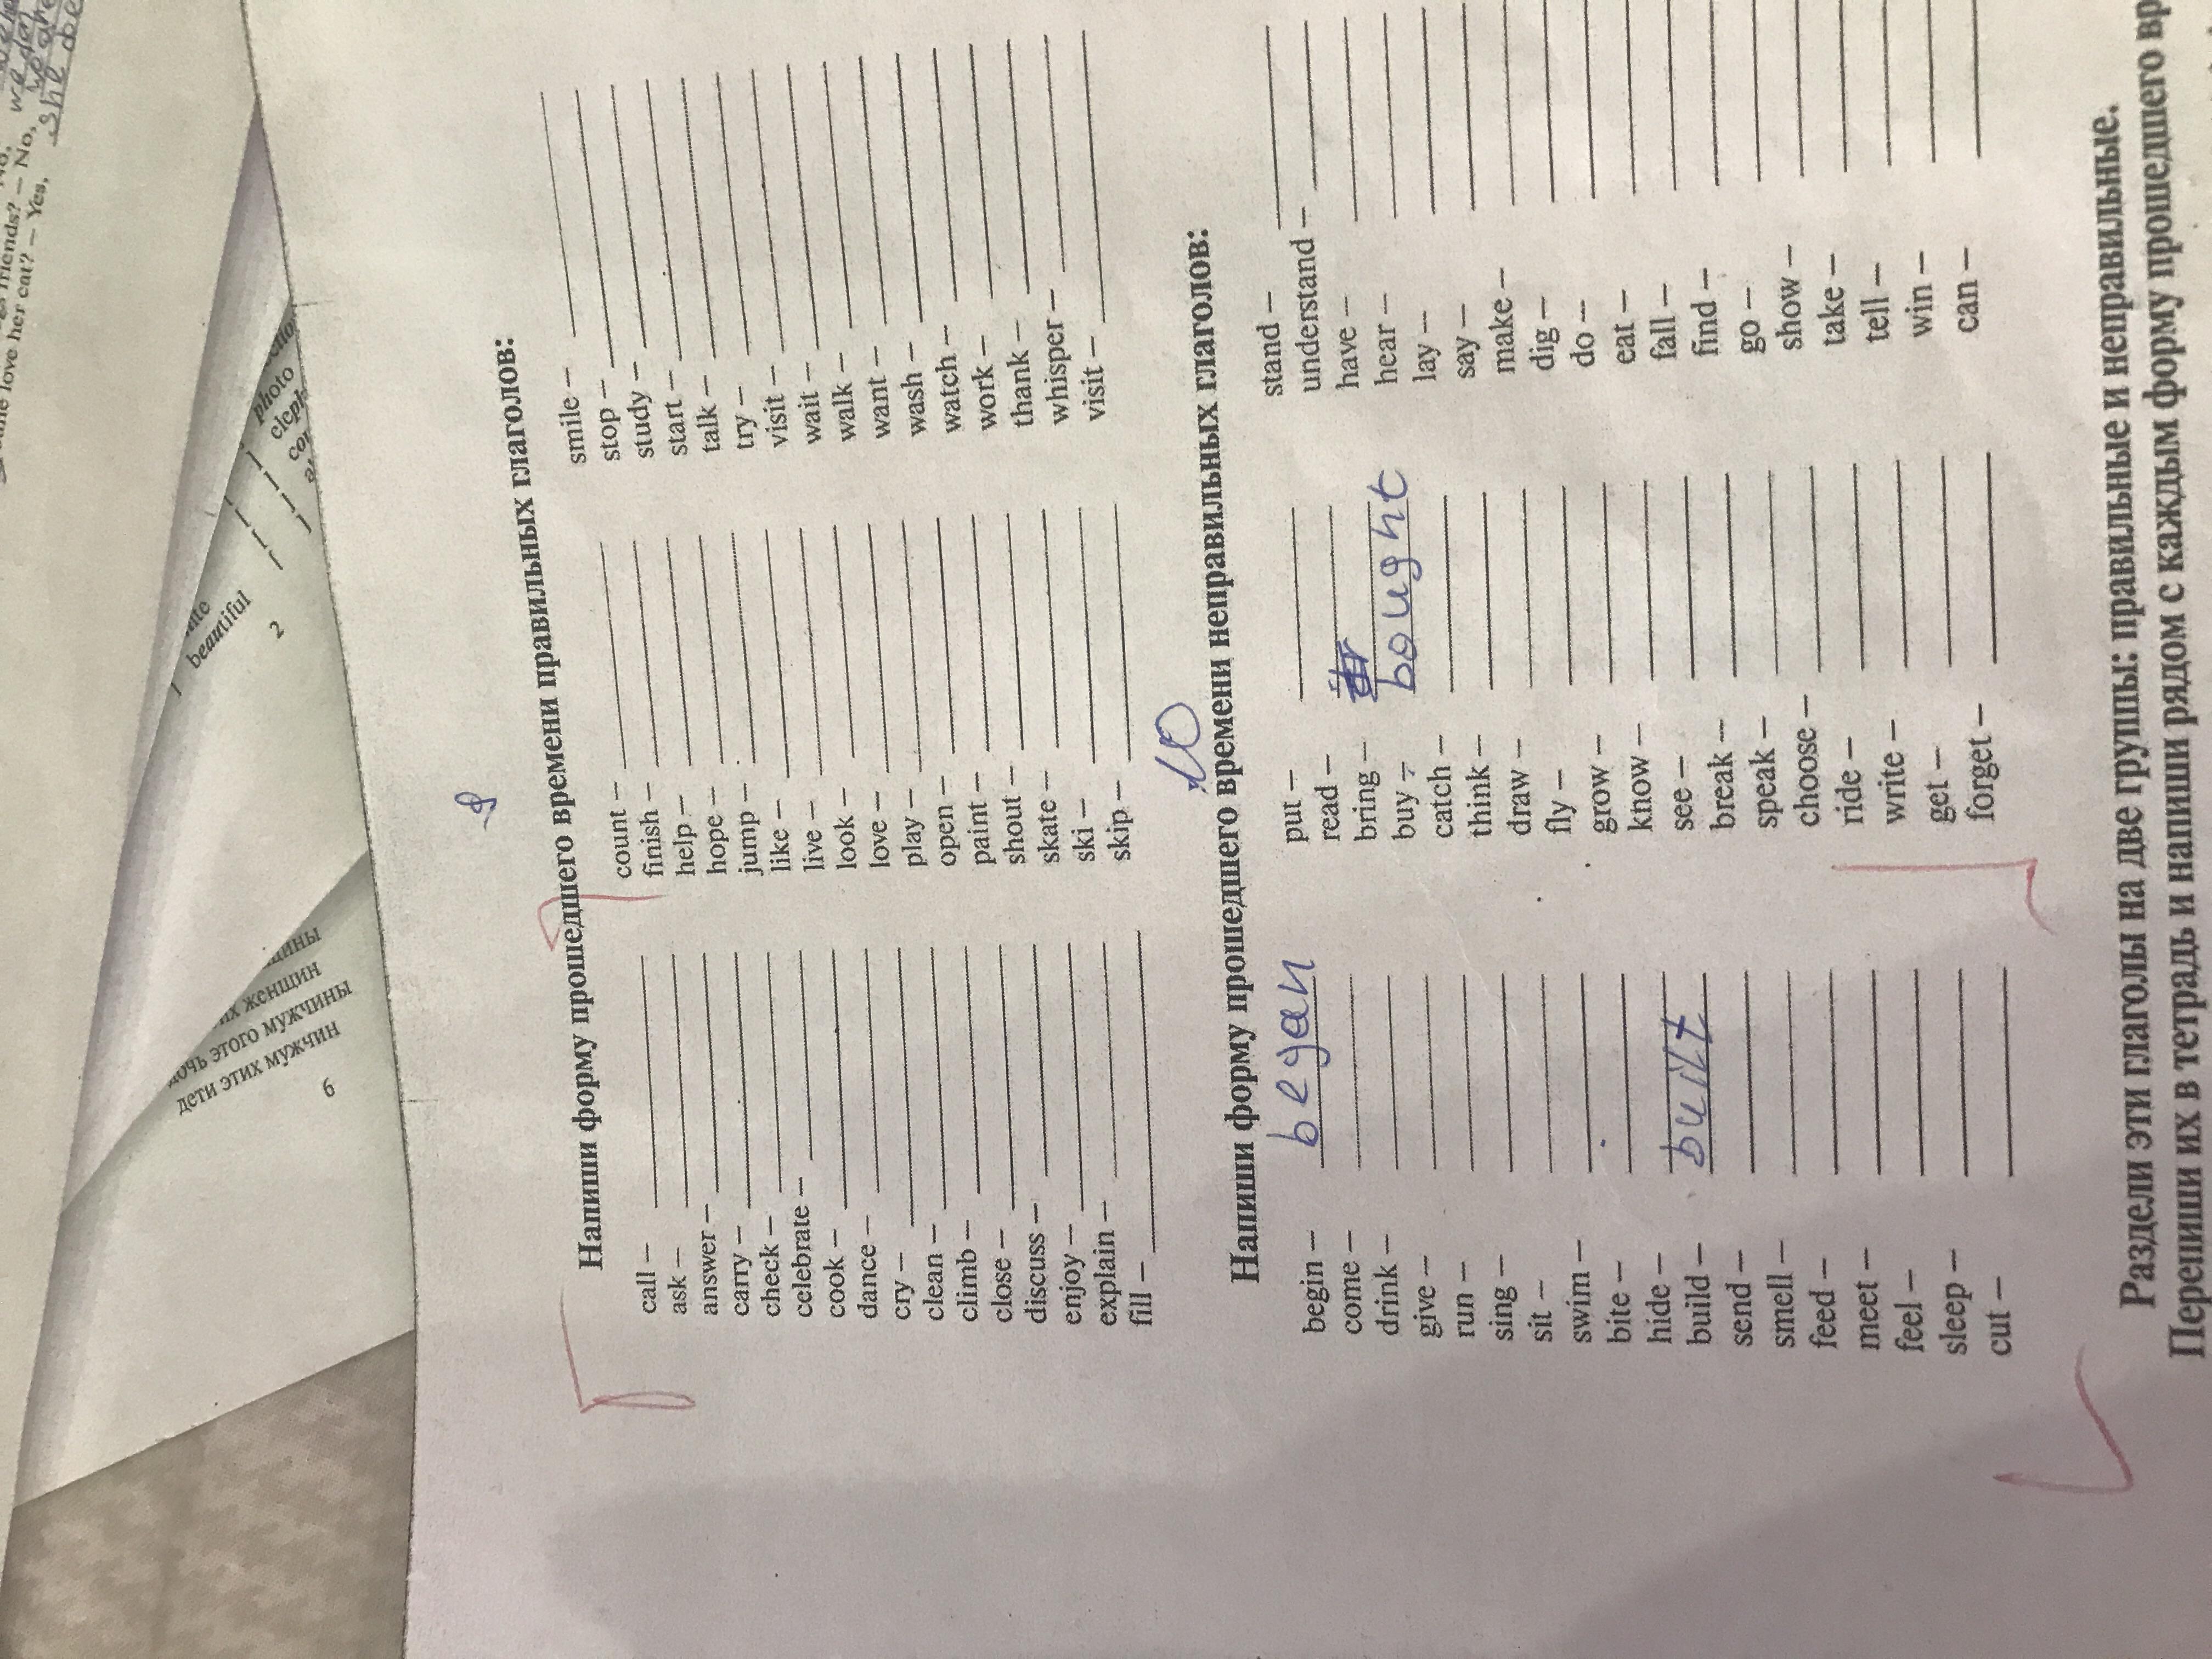 we
she
friends? – No,
love her cat? – Yes,
photo
beautiful
2
женщин
этого мужчины
дети этих мужчин
6
9
Напиши форму прошедшего времени правильных глаголов:
call –
ask –
answer –
carry –
check –
celebrate –
cook –
dance –
cry –
clean –
climb –
close –
discuss –
enjoy –
explain –
fill –
count –
finish –
help –
hope –
jump –
like –
live –
look –
love –
play –
open –
paint –
shout –
skate –
ski –
skip –
smile –
stop –
study –
start –
talk –
try –
visit –
wait –
walk –
want –
wash –
watch –
work –
thank –
whisper –
visit –
10
Напиши форму прошедшего времени неправильных глаголов:
begin – began
come –
drink –
give –
run –
sing –
sit –
swim –
bite –
hide –
build – built
send –
smell –
feed –
meet –
feel –
sleep –
cut –
put –
read –
bring –
buy – bought
catch –
think –
draw –
fly –
grow –
know –
see –
break –
speak –
choose –
ride –
write –
get –
forget –
stand –
understand –
have –
hear –
lay –
say –
make –
dig –
do –
eat –
fall –
find –
go –
show –
take –
tell –
win –
can –
Раздели эти глаголы на две группы: правильные и неправильные.
Перепиши их в тетрадь и напиши рядом с каждым форму прошедшего вр